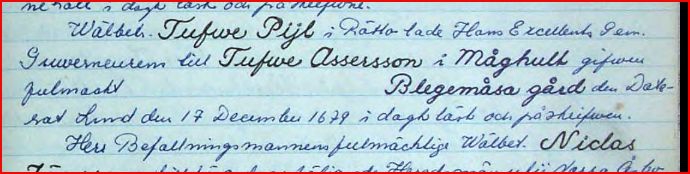 ne rätt i dagh läst och påskrifwne.
Wälbet. Tufwe Pijl i Rätto lade Hans Excellents Gen.
Guverneurens till Tufwe Assersson i Måghult gifwen
fulmacht Blegemåsa gård den Date-
rat Lund den 17 December 1679 i dagh läst och påskrifwen.
Herr Befallningsmannens fulmächtige Wälbet. Niclas